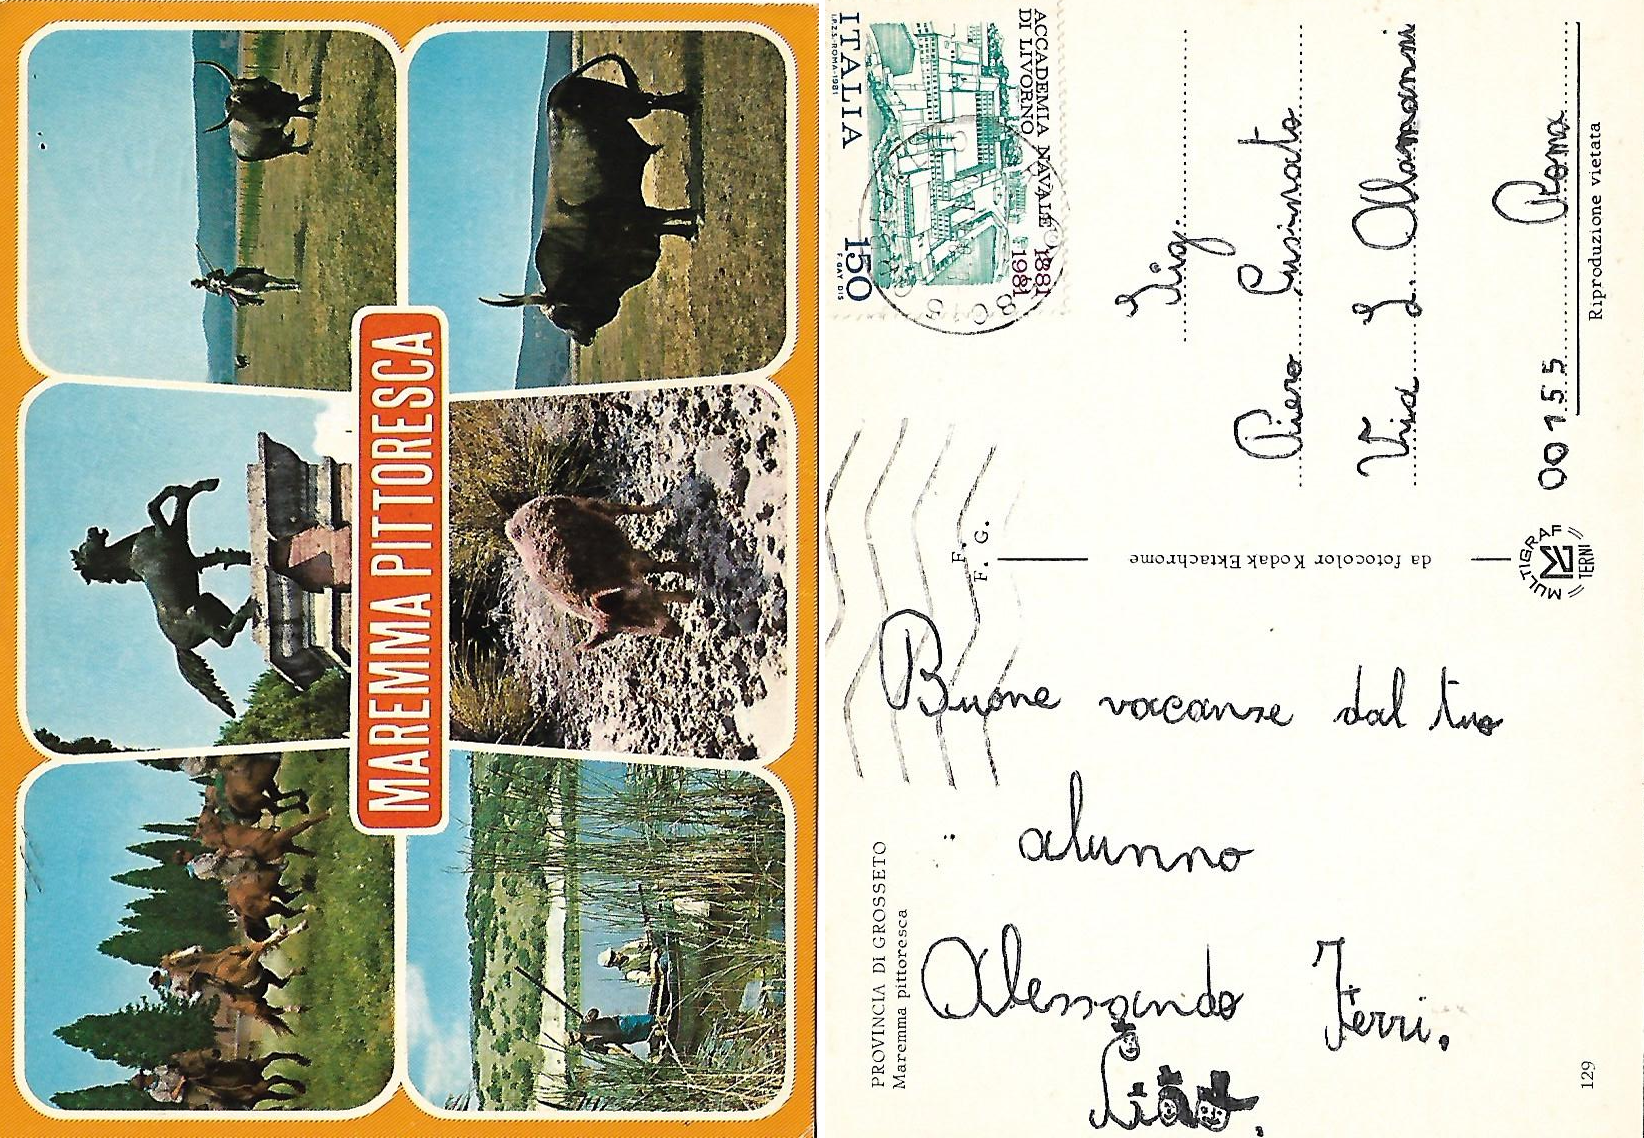 MAREMMA PITTORESCA
ITALIA 150
I.P.Z.S.-ROMA-1981
F. GAY DIS
ACCADEMIA NAVALE 1881
DI LIVORNO 1981
F. F.
F. G.
PROVINCIA DI GROSSETO
Maremma pittoresca
Buone vacanze dal tuo
alunno
Alessando Ferri.
Ciao.
129
da fotocolor Kodak Ektachrome
MULTIGRAF
TERNI
Sig.
Piero Cusinato
Via L. Alamanni
00155 Roma
Riproduzione vietata